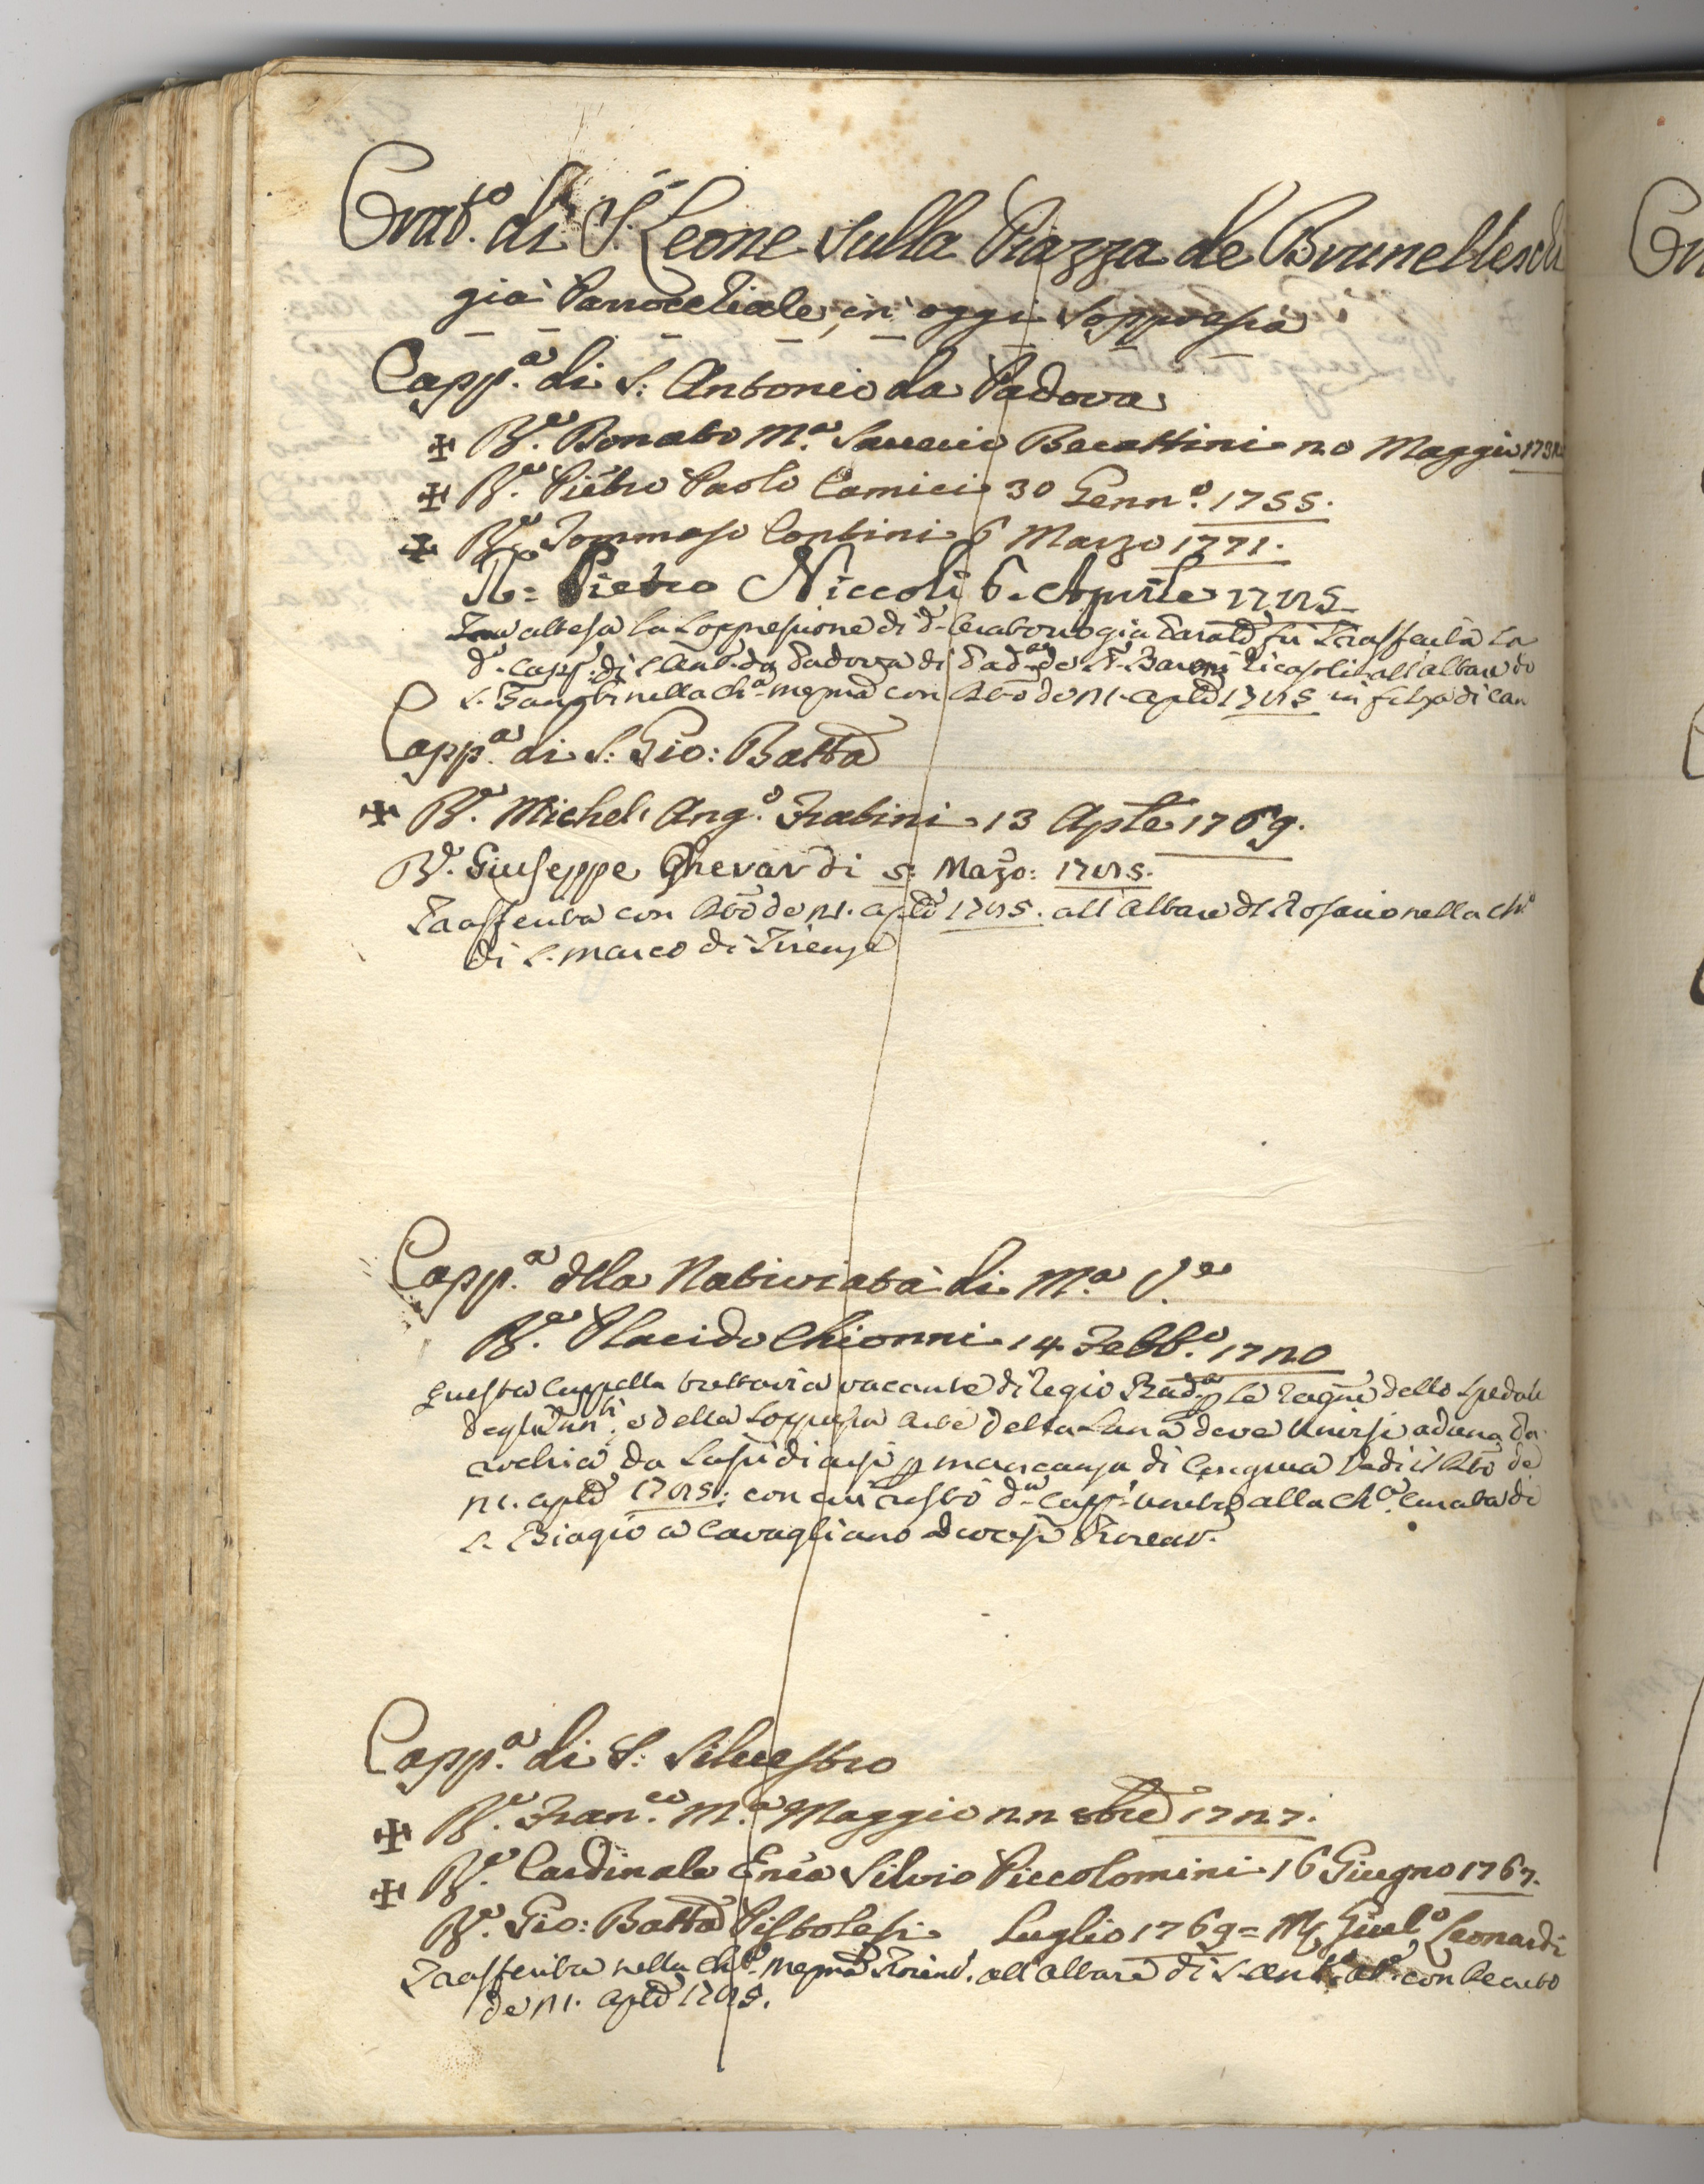 Orat.o di S. Leone sulla Piazza de Brunelleschi
già Parrocchiale, in oggi soppressa
Capp.a di S: Antonio da Padova
✠ R.e Donato M.a Saverio Becattini 20 Maggio
✠ R.e Pietro Paolo Camici 30 Genn.o 1755.
✠ R.e Tommaso Contini 6 Marzo 1771.
R: Pietro Niccoli 6. Aprile 1785
attesa la Soppressione di d. Oratorio già fù trasferita la
d. Capp. di S. Ant. da Padova di Pad. de SS. Baroni Ricasoli all'altare di
S. nella Ch.a con de 21. Aple 1785 in filza di
Capp.a di S: Gio: Batta
✠ R.e Michel Ang.o Frabini 13 Aple 1769.
R.e Giuseppe Gherardi 5: Marzo: 1785.
Trasferita con de 21. aple 1785. all'Altare del Rosario nella Ch.a
di S. Marco di Firenze
Capp.a dlla Natività di M.a V.e
R.e Placido Chionni 14 Febb.o 1720
Questa Cappella tuttavia vacante di regio Pad. p le ragni dello Spedale
degl'Inn.ti, e della Soppressa Arte della Lana deve Unirsi ad una Pa-
rochia da p mancanza di Congrua Vedi il de
21. aple 1785; con cui restò d. Capp. unita alla Ch.a Curata di
S. Biagio a Cavagliano Diocesi Fiorent.
Capp.a di S: Silvestro
✠ R.e Fran.co M.a Maggio 22 1727.
✠ R.e Cardinale Enea Silvio Piccolomini 16 Giugno 1767.
R.e Gio: Batta Pistolesi Luglio 1769 = Giul.o Leonardi
Trasferita nella Ch.a Fiorent. all'altare di S. con Decreto
de 21. aple 1785.